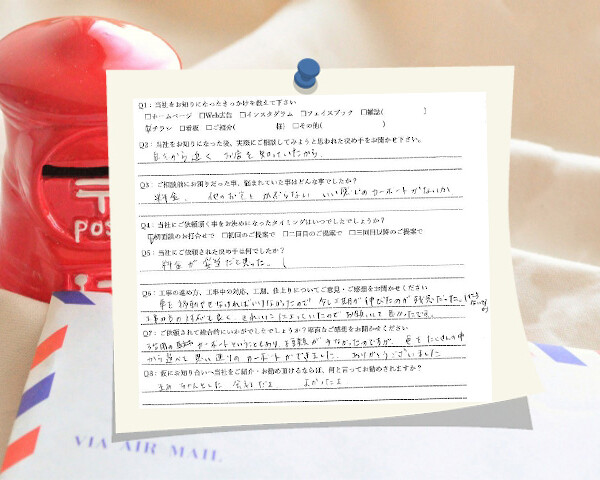 〒
POST
Q1：当社をお知りになったきっかけを教えて下さい
□ホームページ □Web広告 □インスタグラム □フェイスブック □雑誌( )
☑チラシ □看板 □ご紹介( 様) □その他( )
Q2：当社をお知りになった後、実際にご相談してみようと思われた決め手をお聞かせ下さい。
自宅から近く お店を知っていたから
Q3：ご相談前にお困りだった事、悩まれていた事はどんな事でしたか？
料金、他のお宅とかぶらない いい感じのカーポートがないか
Q4：当社にご依頼頂く事をお決めになったタイミングはいつでしたでしょうか？
☑初面談のお打合せで □初回のご提案で □二回目のご提案で □三回目以降のご提案で
Q5：当社にご依頼された決め手は何でしたか？
料金が妥当だと思った。
Q6：工事の進め方、工事中の対応、工期、仕上りについてご意見・ご感想をお聞かせください
車を移動させなければいけなかったので 少し工期が伸びたのが残念だった。
工事の方の対応も良く きれいに なっていたのでお願いして良かったです。
Q7：ご依頼されて総合的にいかがでしたでしょうか？率直なご感想をお聞かせください
カーポートということもあり、種類が少なかったのですが、色をたくさんの中
から選べて思い通りのカーポートができました。ありがとうございました
Q8：仮にお知り合いへ当社をご紹介・お勧め頂けるならば、何と言ってお勧めされますか？
ちゃんとした 会社だよ よかったよ
VIA AIR MAIL